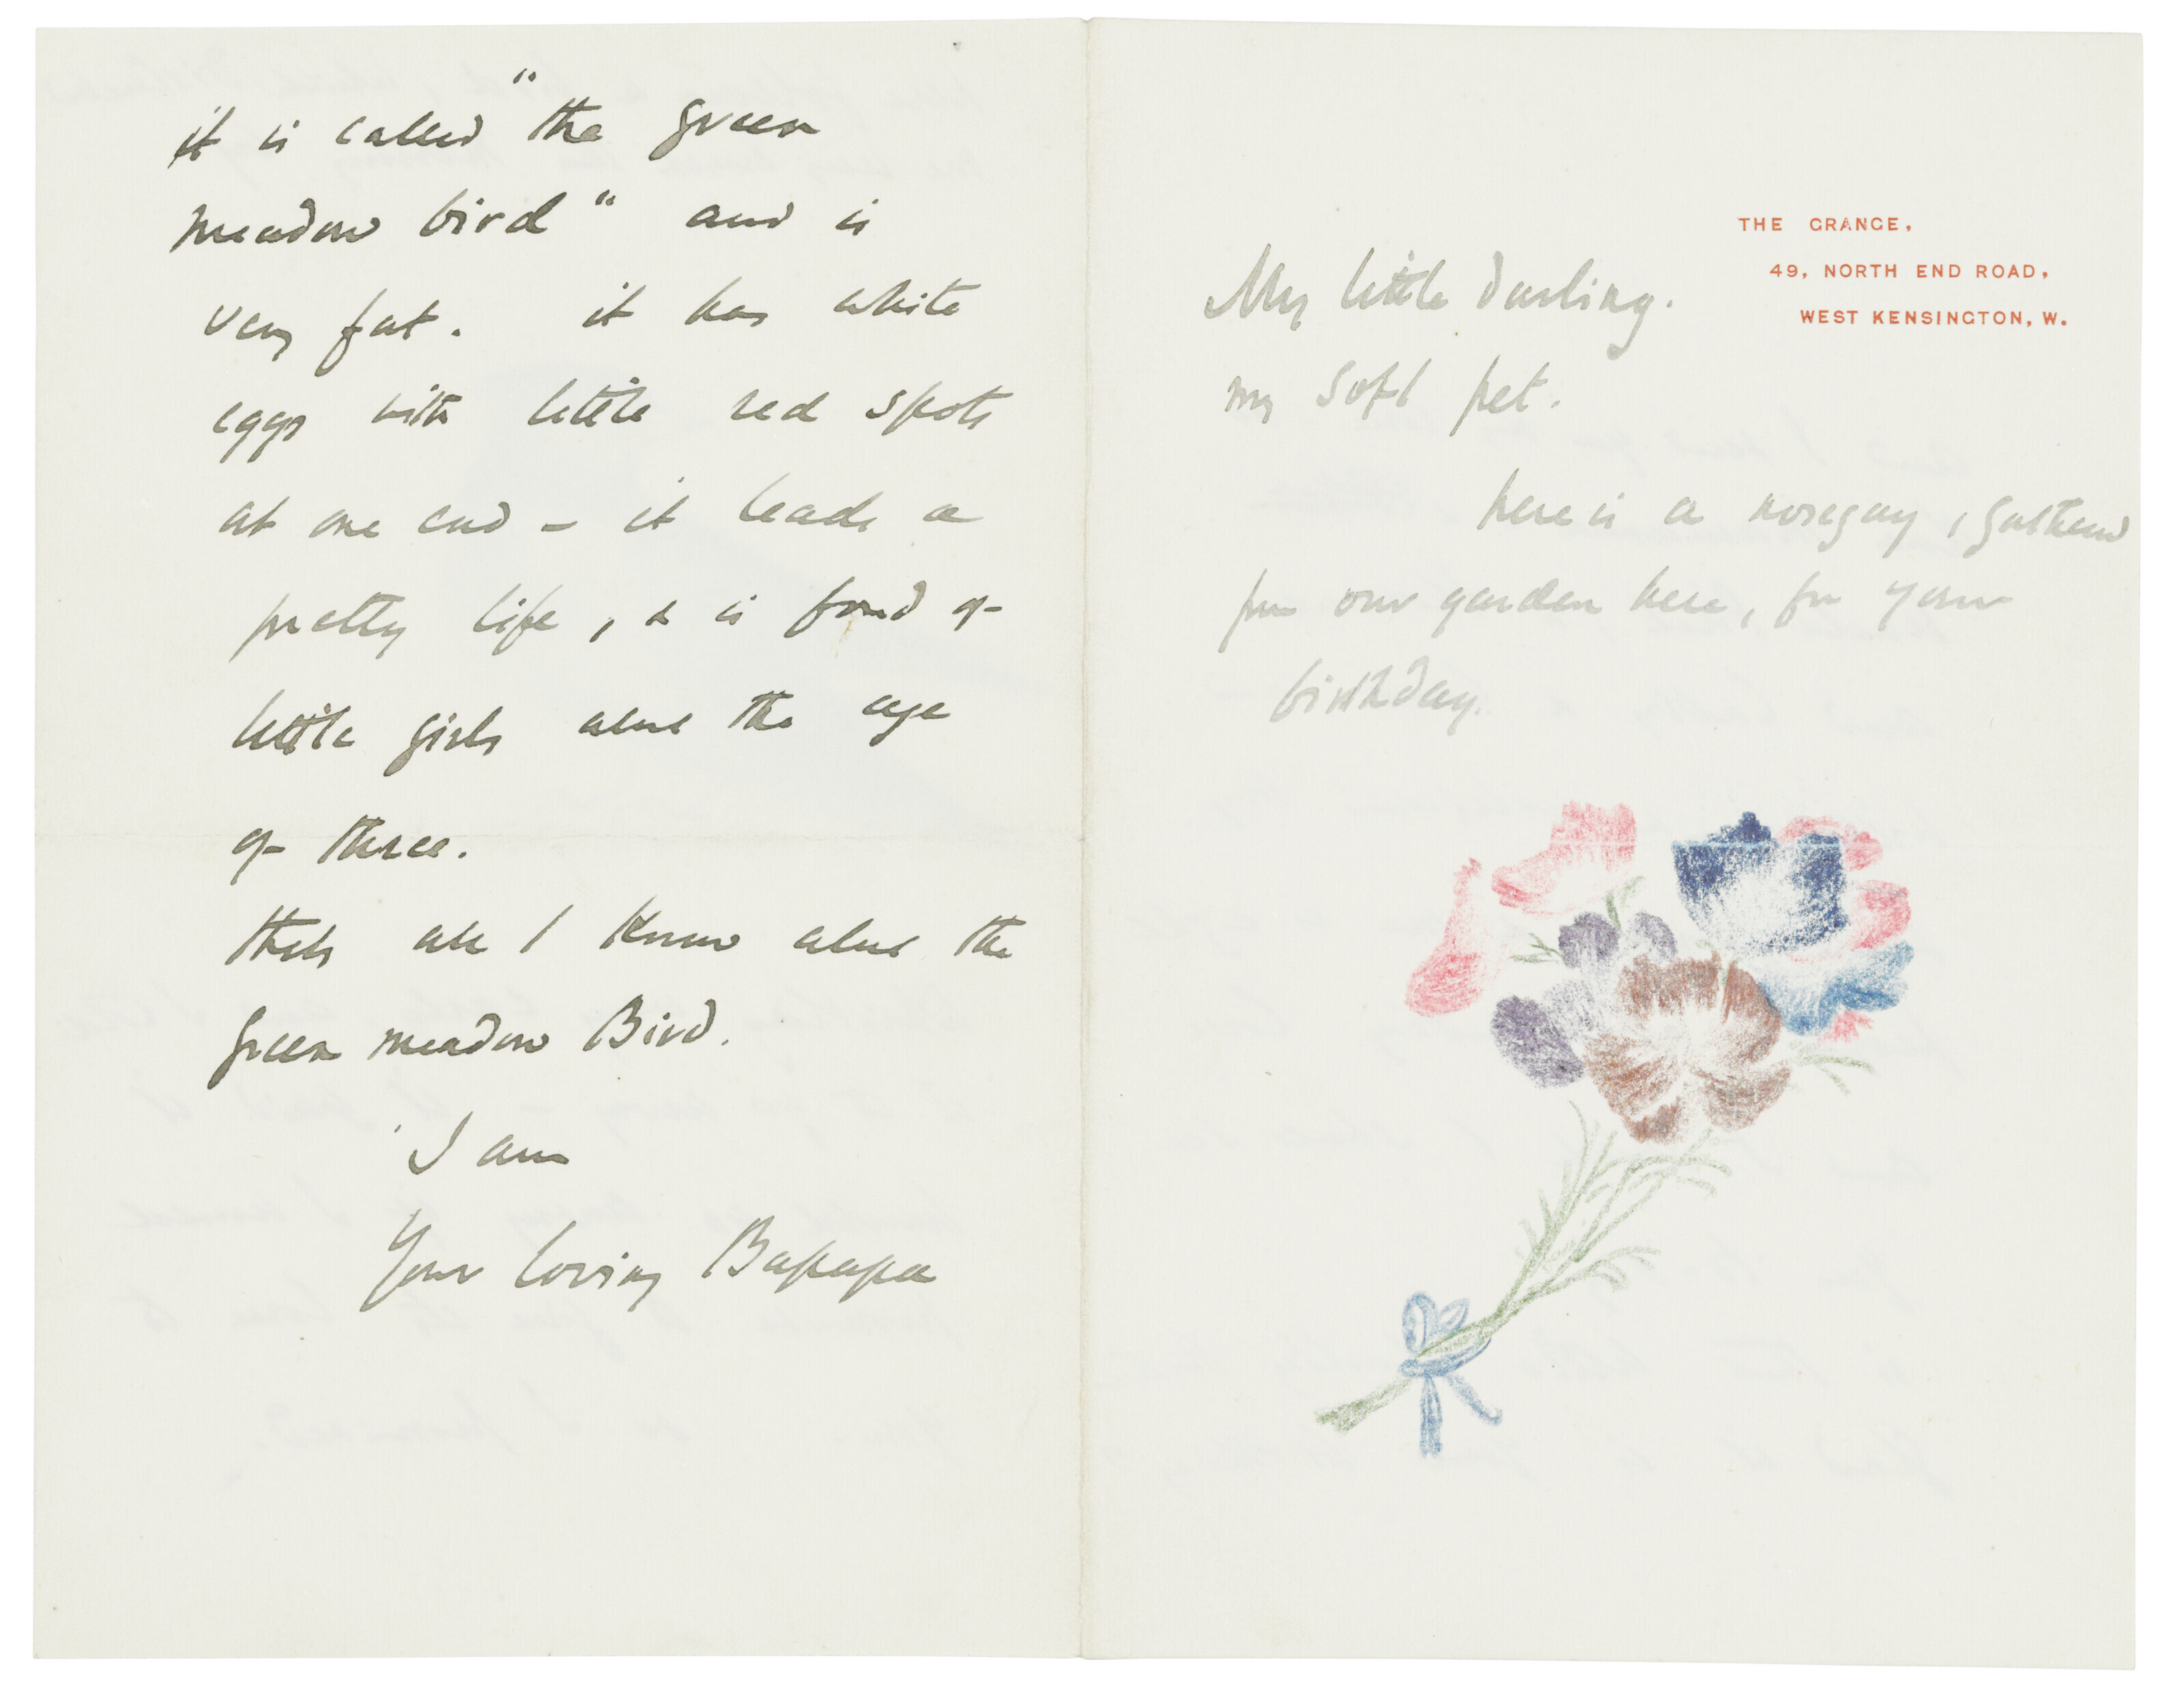 it is called "the green
meadow bird" and is
very fat. it has white
eggs with little red spots
at one end - it leads a
pretty life, & is fond of
little girls about the age
of three.
thats all I know about the
green meadow Bird.
I am
Your loving Bapapa
THE GRANGE,
49, NORTH END ROAD,
WEST KENSINGTON, W.
My little darling.
my soft pet.
here is a nosegay I gathered
from our garden here, for your
birthday.